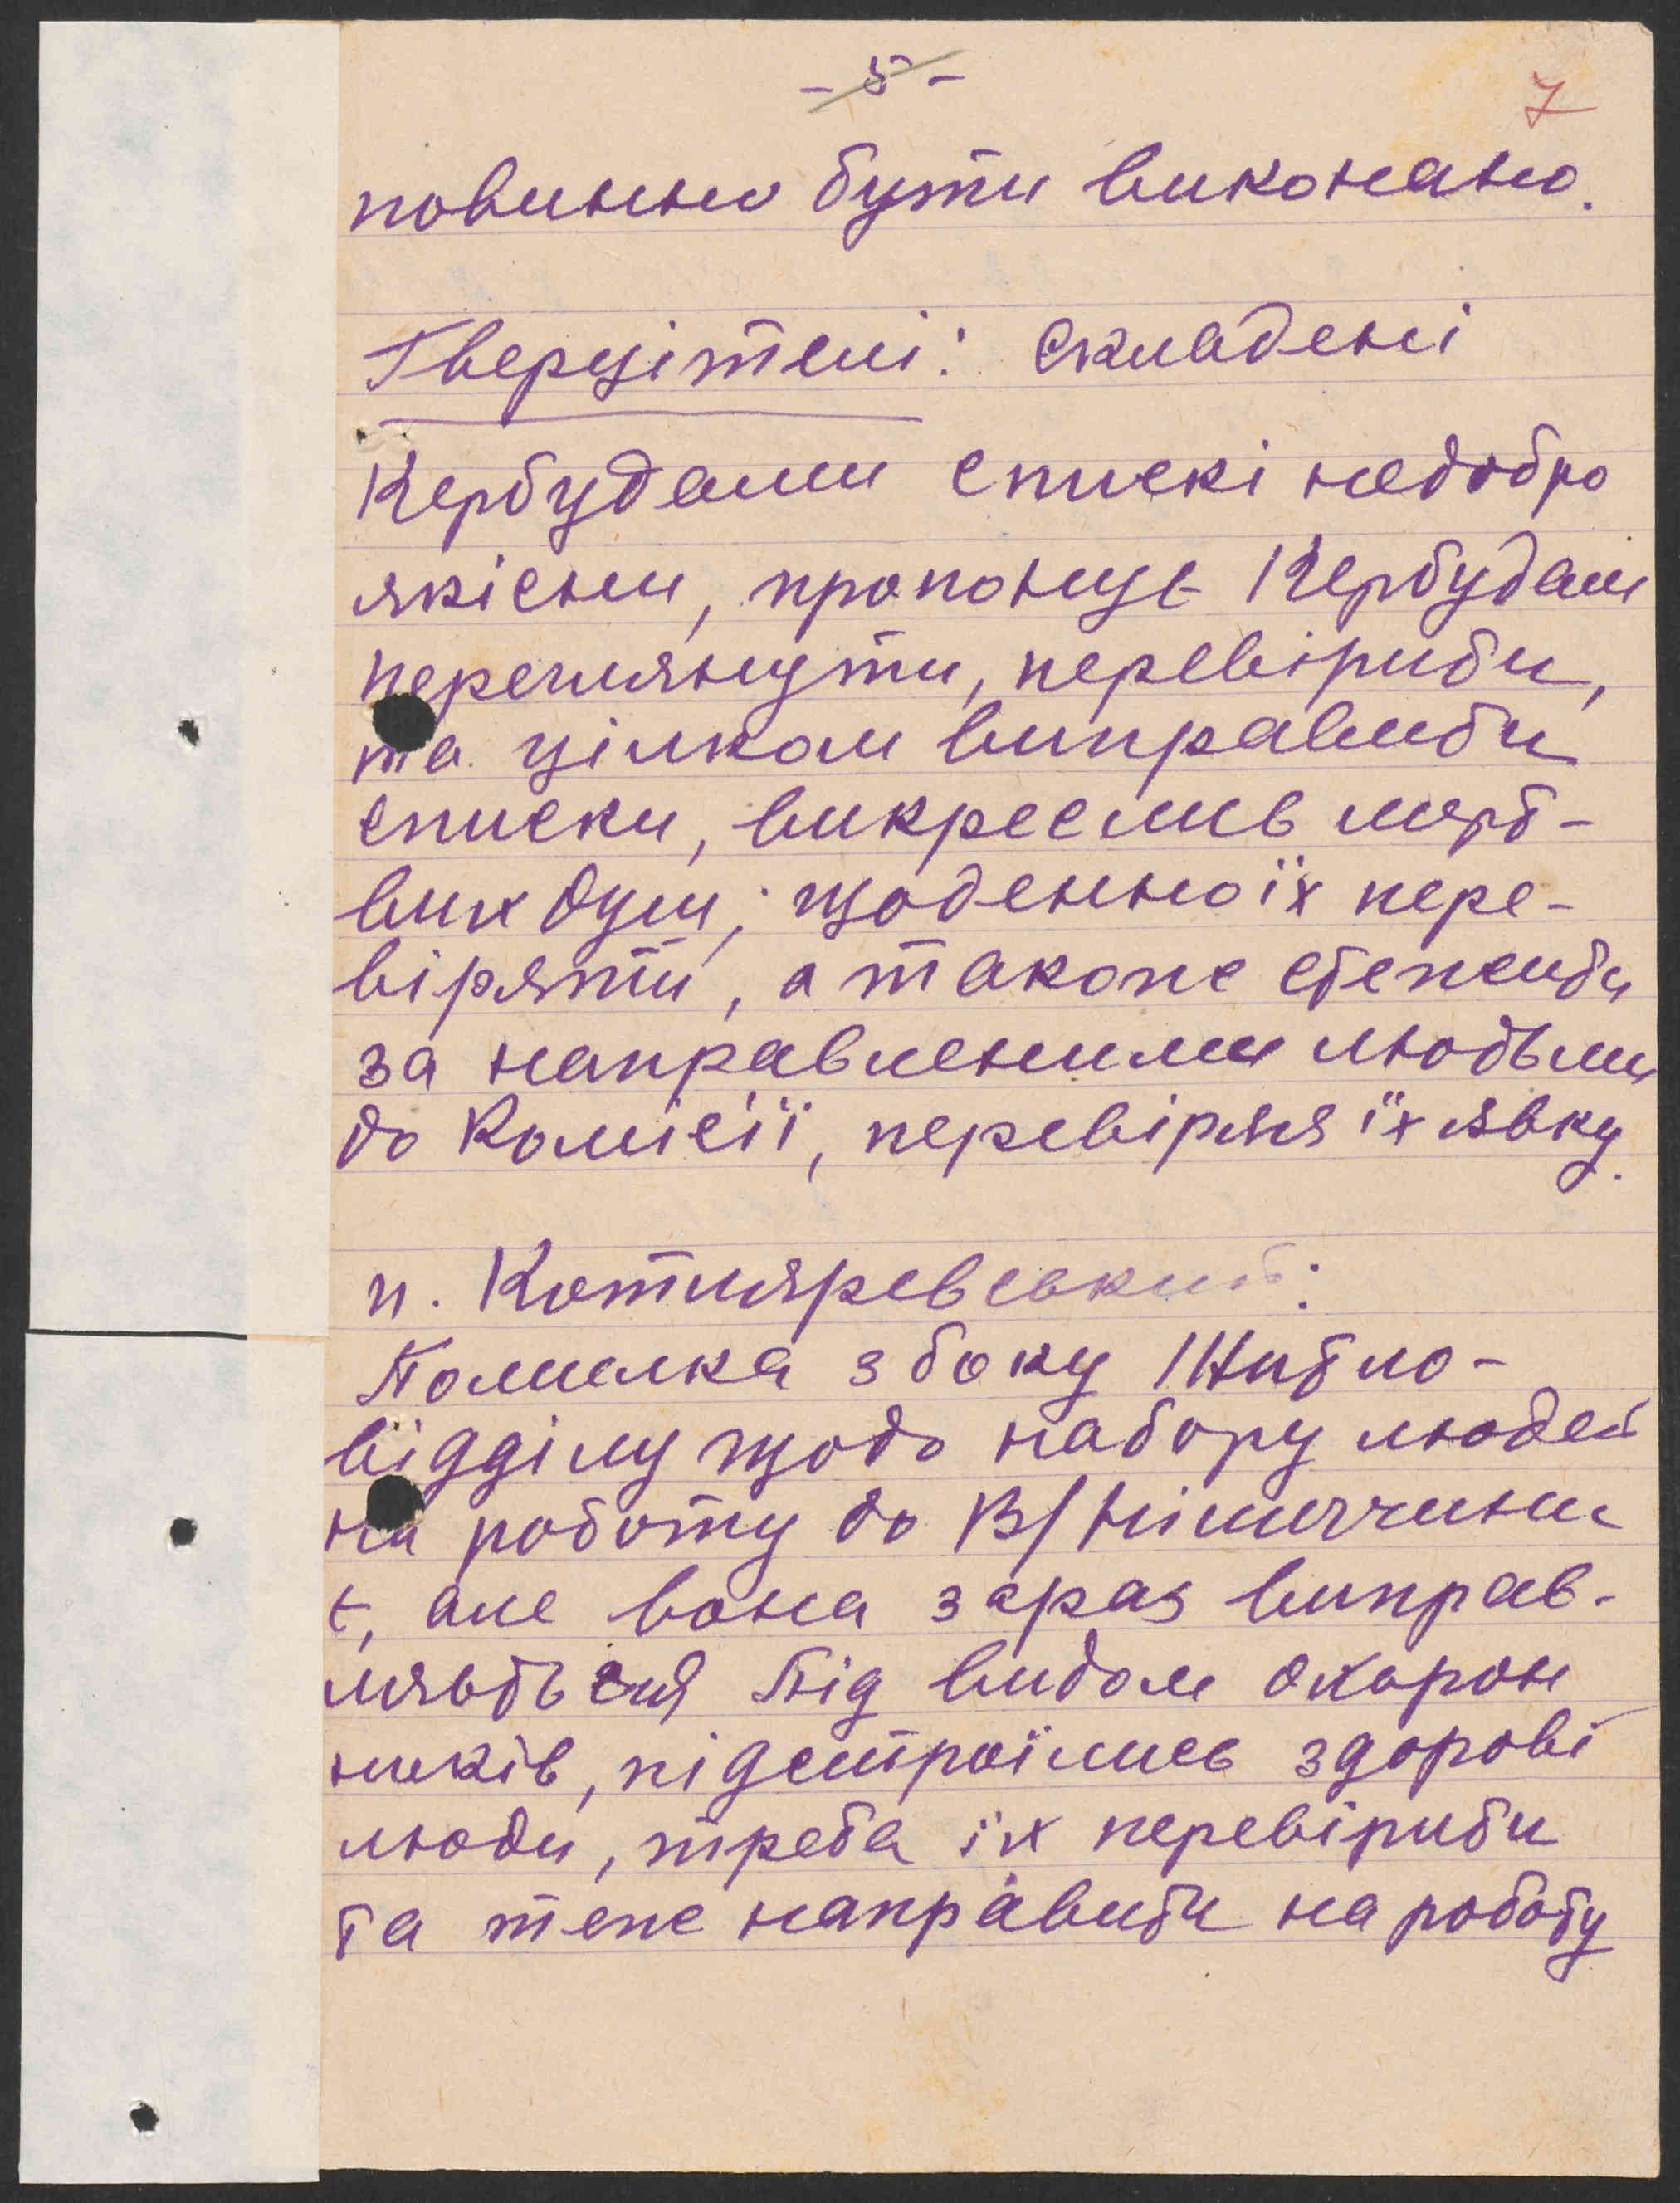 - 5 -
7
повинно бути виконано.
Тверцітелі: Складені
Кербудами спискі недобро
якісни, пропонує Кербудам
переглянути, перевірити,
та цілком виправити
списки, викреслив мерт-
вих душ; щоденно їх пере-
віряти, а також стежити
за направленими людьми
до Комісії, перевіряя їх явку.
п. Котляревський:
Помилка з боку Житло-
відділу щодо набору людей
на роботу до В/Німеччини
є, але вона зараз виправ-
ляється під видом охорон
ників, підстроїлись здорові
люди, треба їх перевірити
та теж направити на роботу